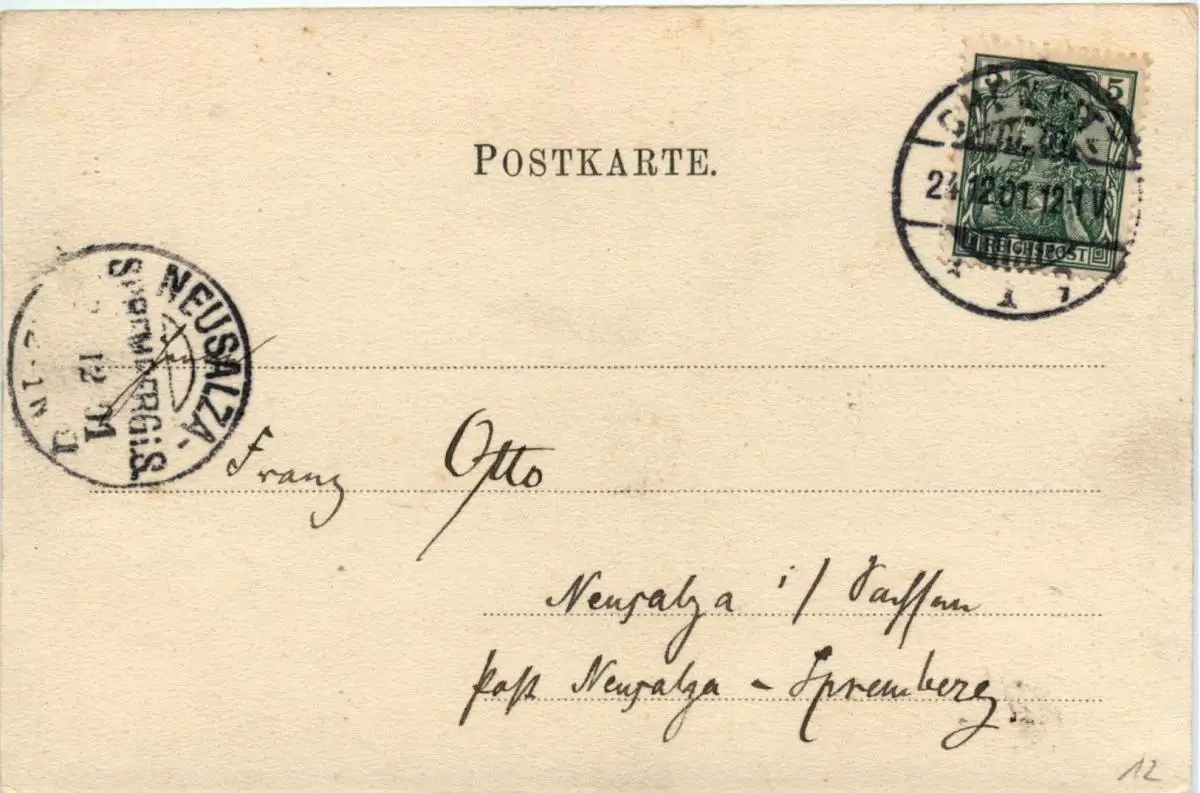 POSTKARTE.
5 5
REICHSPOST
24.12.01.12-1 V.
NEUSALZA-
SPREMBERG i. S.
12 01
Franz Otto
Neusalza i/ Sachsen
Post Neusalza - Spremberg.
12